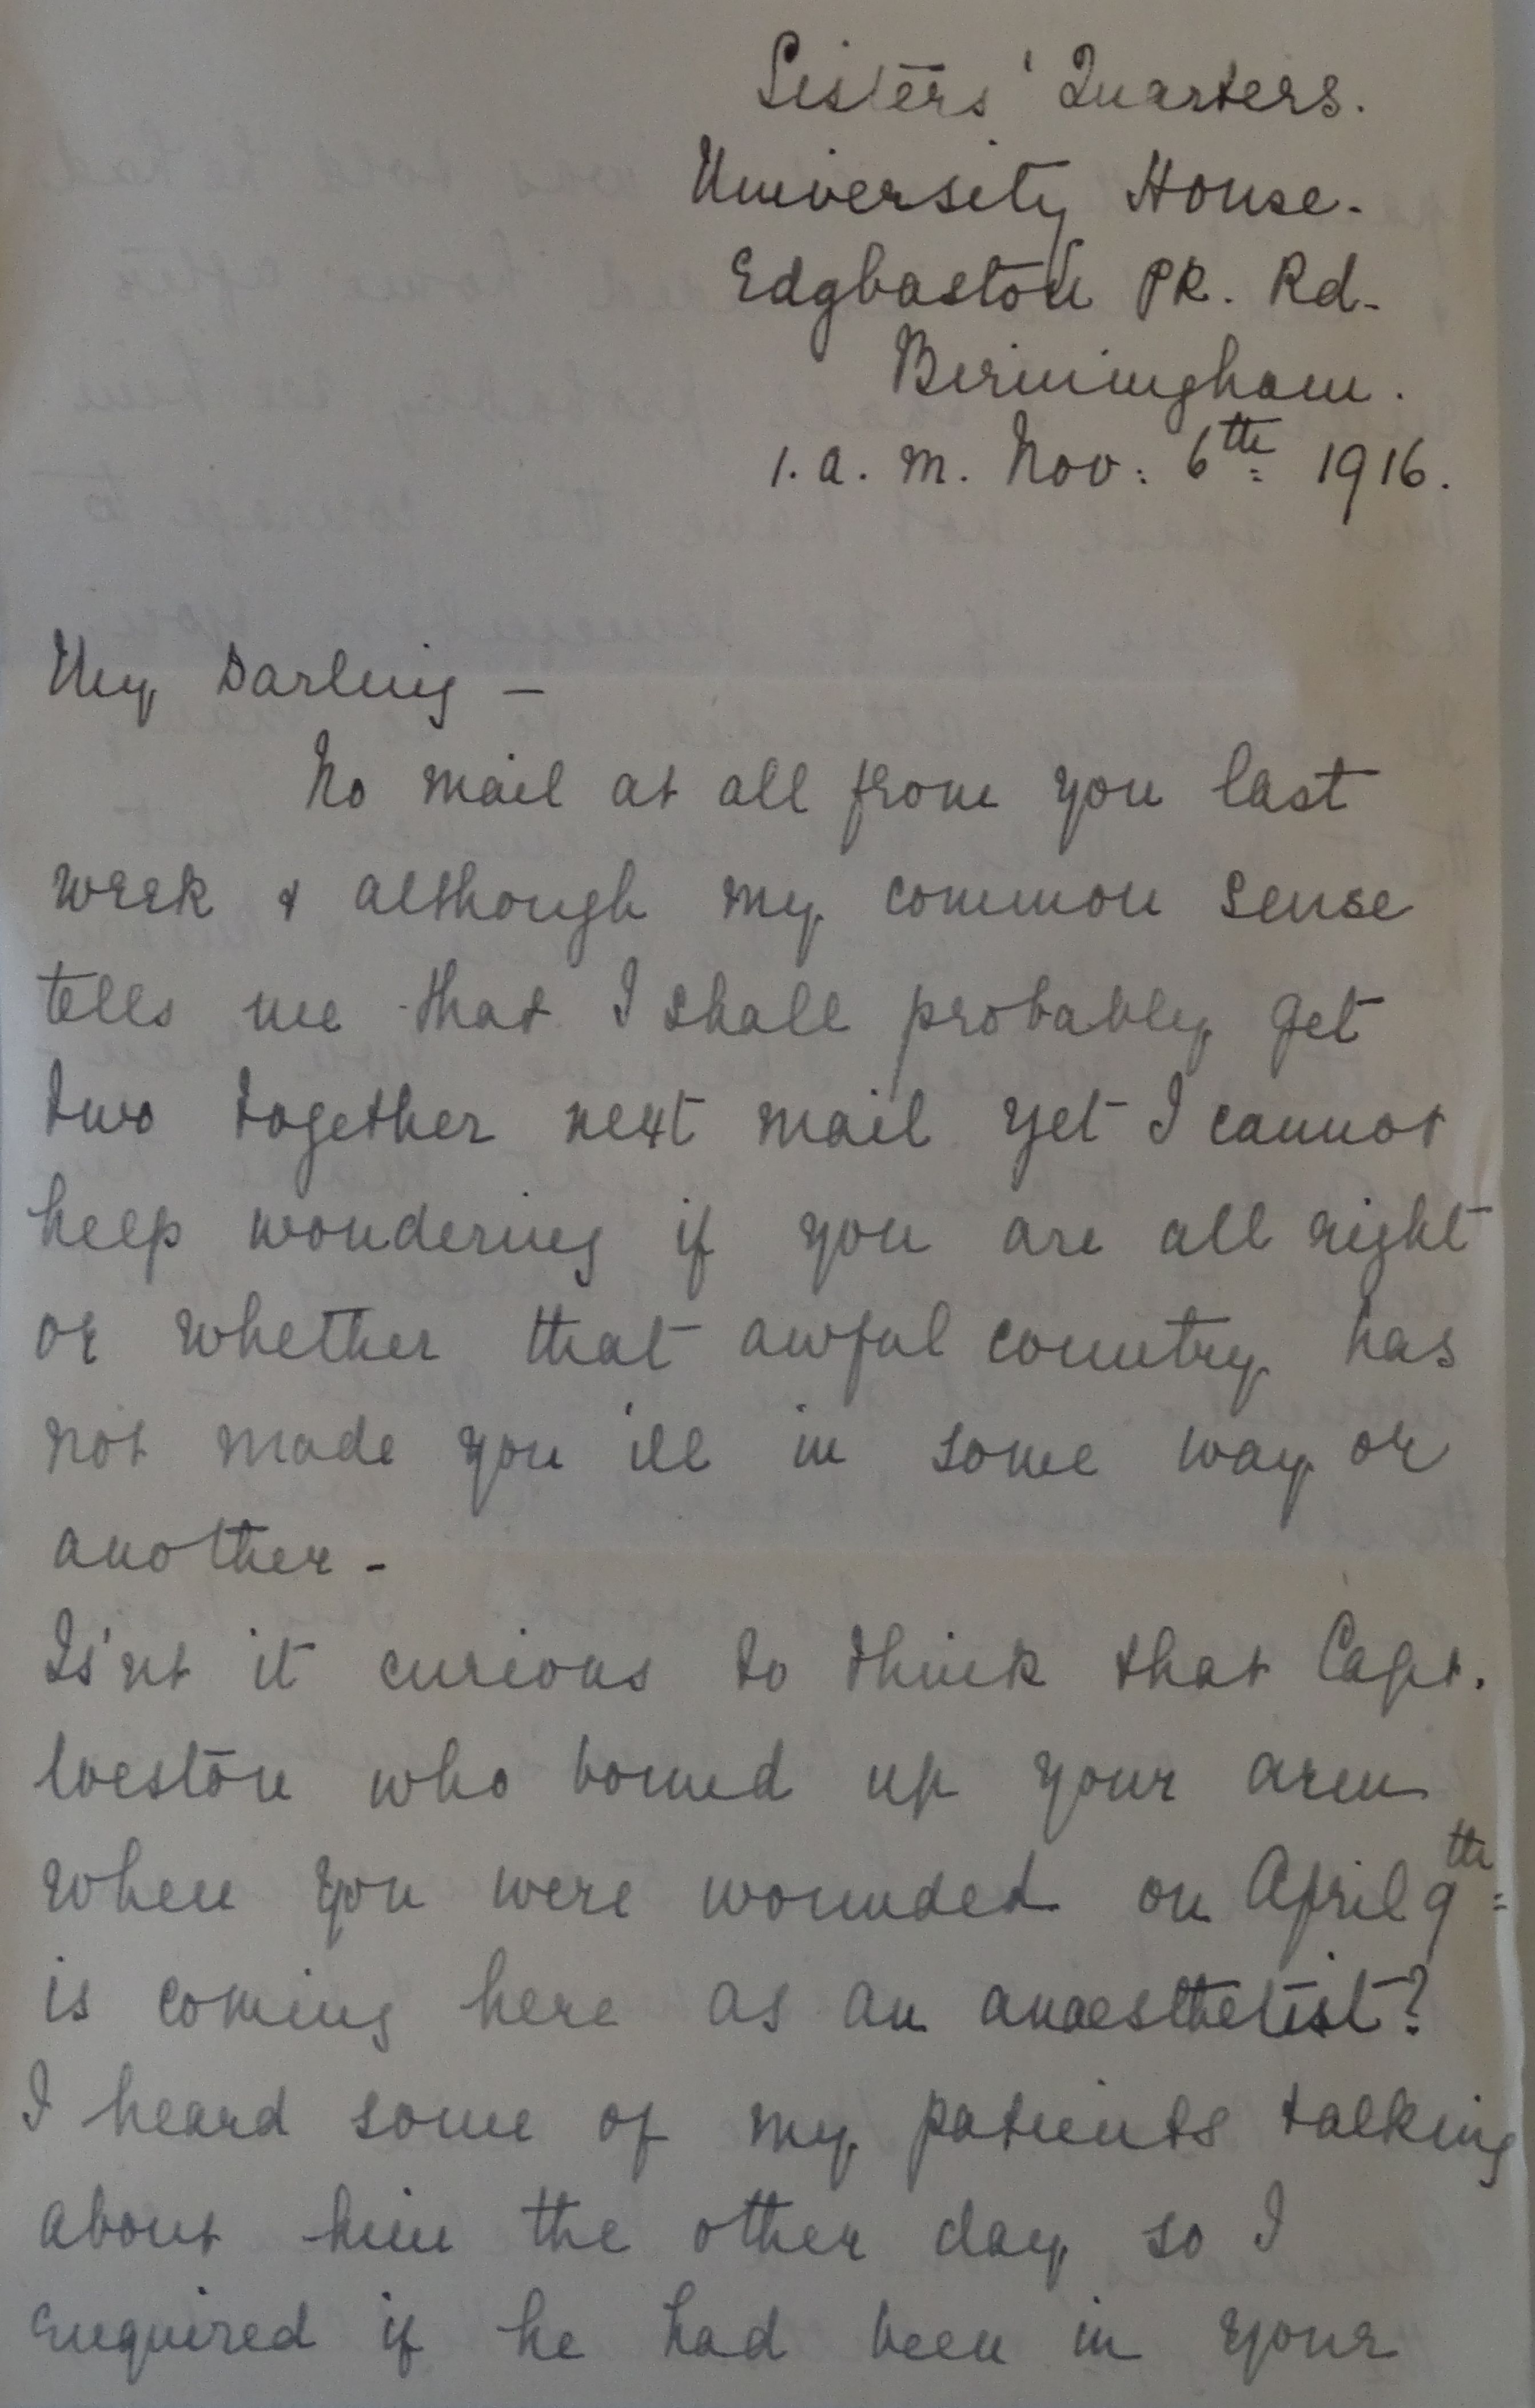 Sisters' Quarters.
University House.
Edgbaston PK. Rd.
Birmingham.
1. a. m. Nov: 6th 1916.
My Darling –
No mail at all from you last
week & although my common sense
tells me that I shall probably get
two together next mail yet I cannot
help wondering if you are all right
or whether that awful country has
not made you ill in some way or
another -
Is'nt it curious to think that Capt.
Weston who bound up your arm
when you were wounded on April 9th
is coming here as an anaesthetist?
I heard some of my patients talking
about him the other day so I
enquired if he had been in your